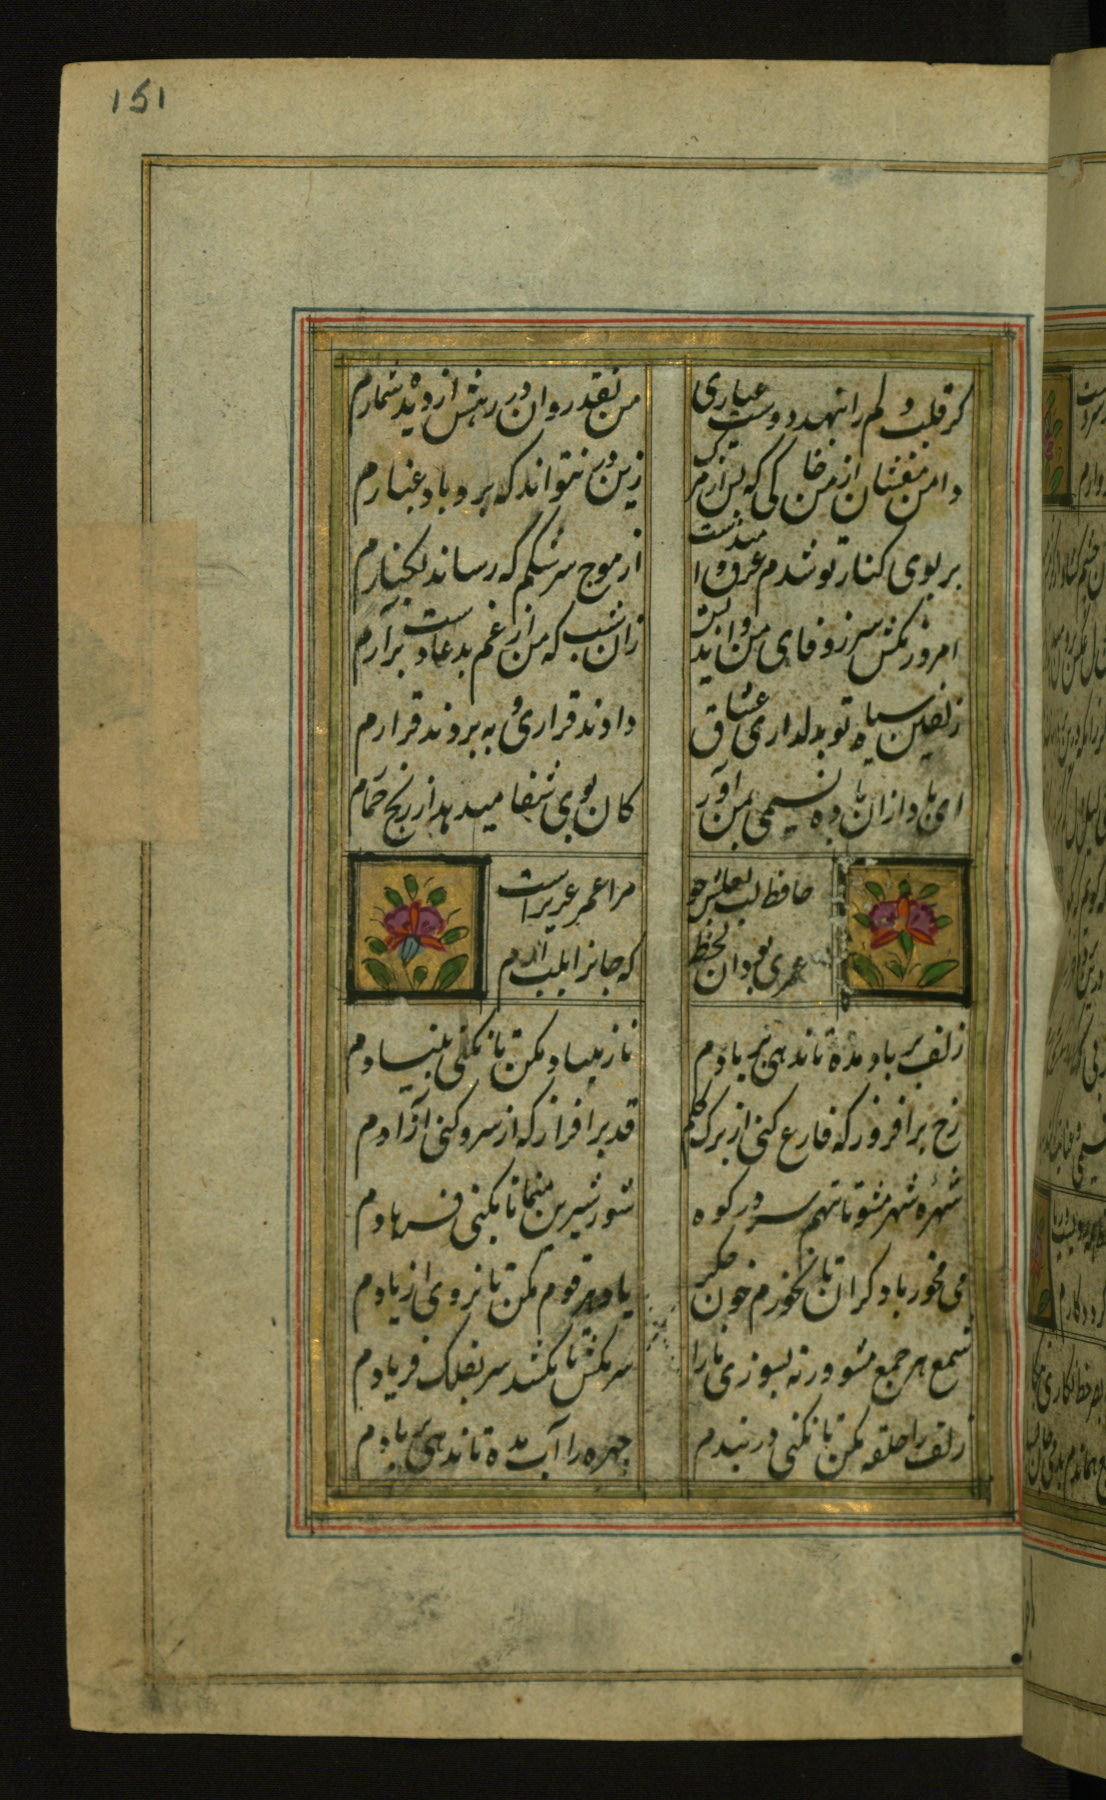 151
کر قلب دلم را ننهد دوست عیاری
من نقد روان در رهش از دیده شمارم
دامن مفشان از من خاکی که پس از مرگ
زین در نتواند که برد باد غبارم
بر بوی کنار تو شدم غرق و امیدست
از موج سرشکم که رساند بکنارم
امروز مکش سر ز وفای من و اندیش
زان شب که من از غم بدعا دست برآرم
زلفین سیاه تو بدلداری عشاق
دادند قراری و به بردند قرارم
ای باد از ان باده نسیمی بمن آور
کان بوی شفا میدهد از رنج خمارم
حافظ لب لعلش چو مرا عمر عزیز است
عمری بود ان لحظه که جانرا بلب آرم
زلف بر باد مده تا ندهی بر بادم
ناز بنیاد مکن تا نکنی بنیادم
رخ برافروز که فارغ کنی از برک کلم
قد برافراز که از سرو کنی آزادم
شهره شهر مشو تا ننهم سر در کوه
شور شیرین منما تا نکنی فرهادم
می مخور با دکران تا نخورم خون جکر
یاد هر قوم مکن تا نروی از یادم
شمع هر جمع مشو ورنه بسوزی ما را
سر مکش تا نکشد سر بفلک فریادم
زلف را حلقه مکن تا نکنی در بندم
چهره را آب مده تا ندهی بر بادم